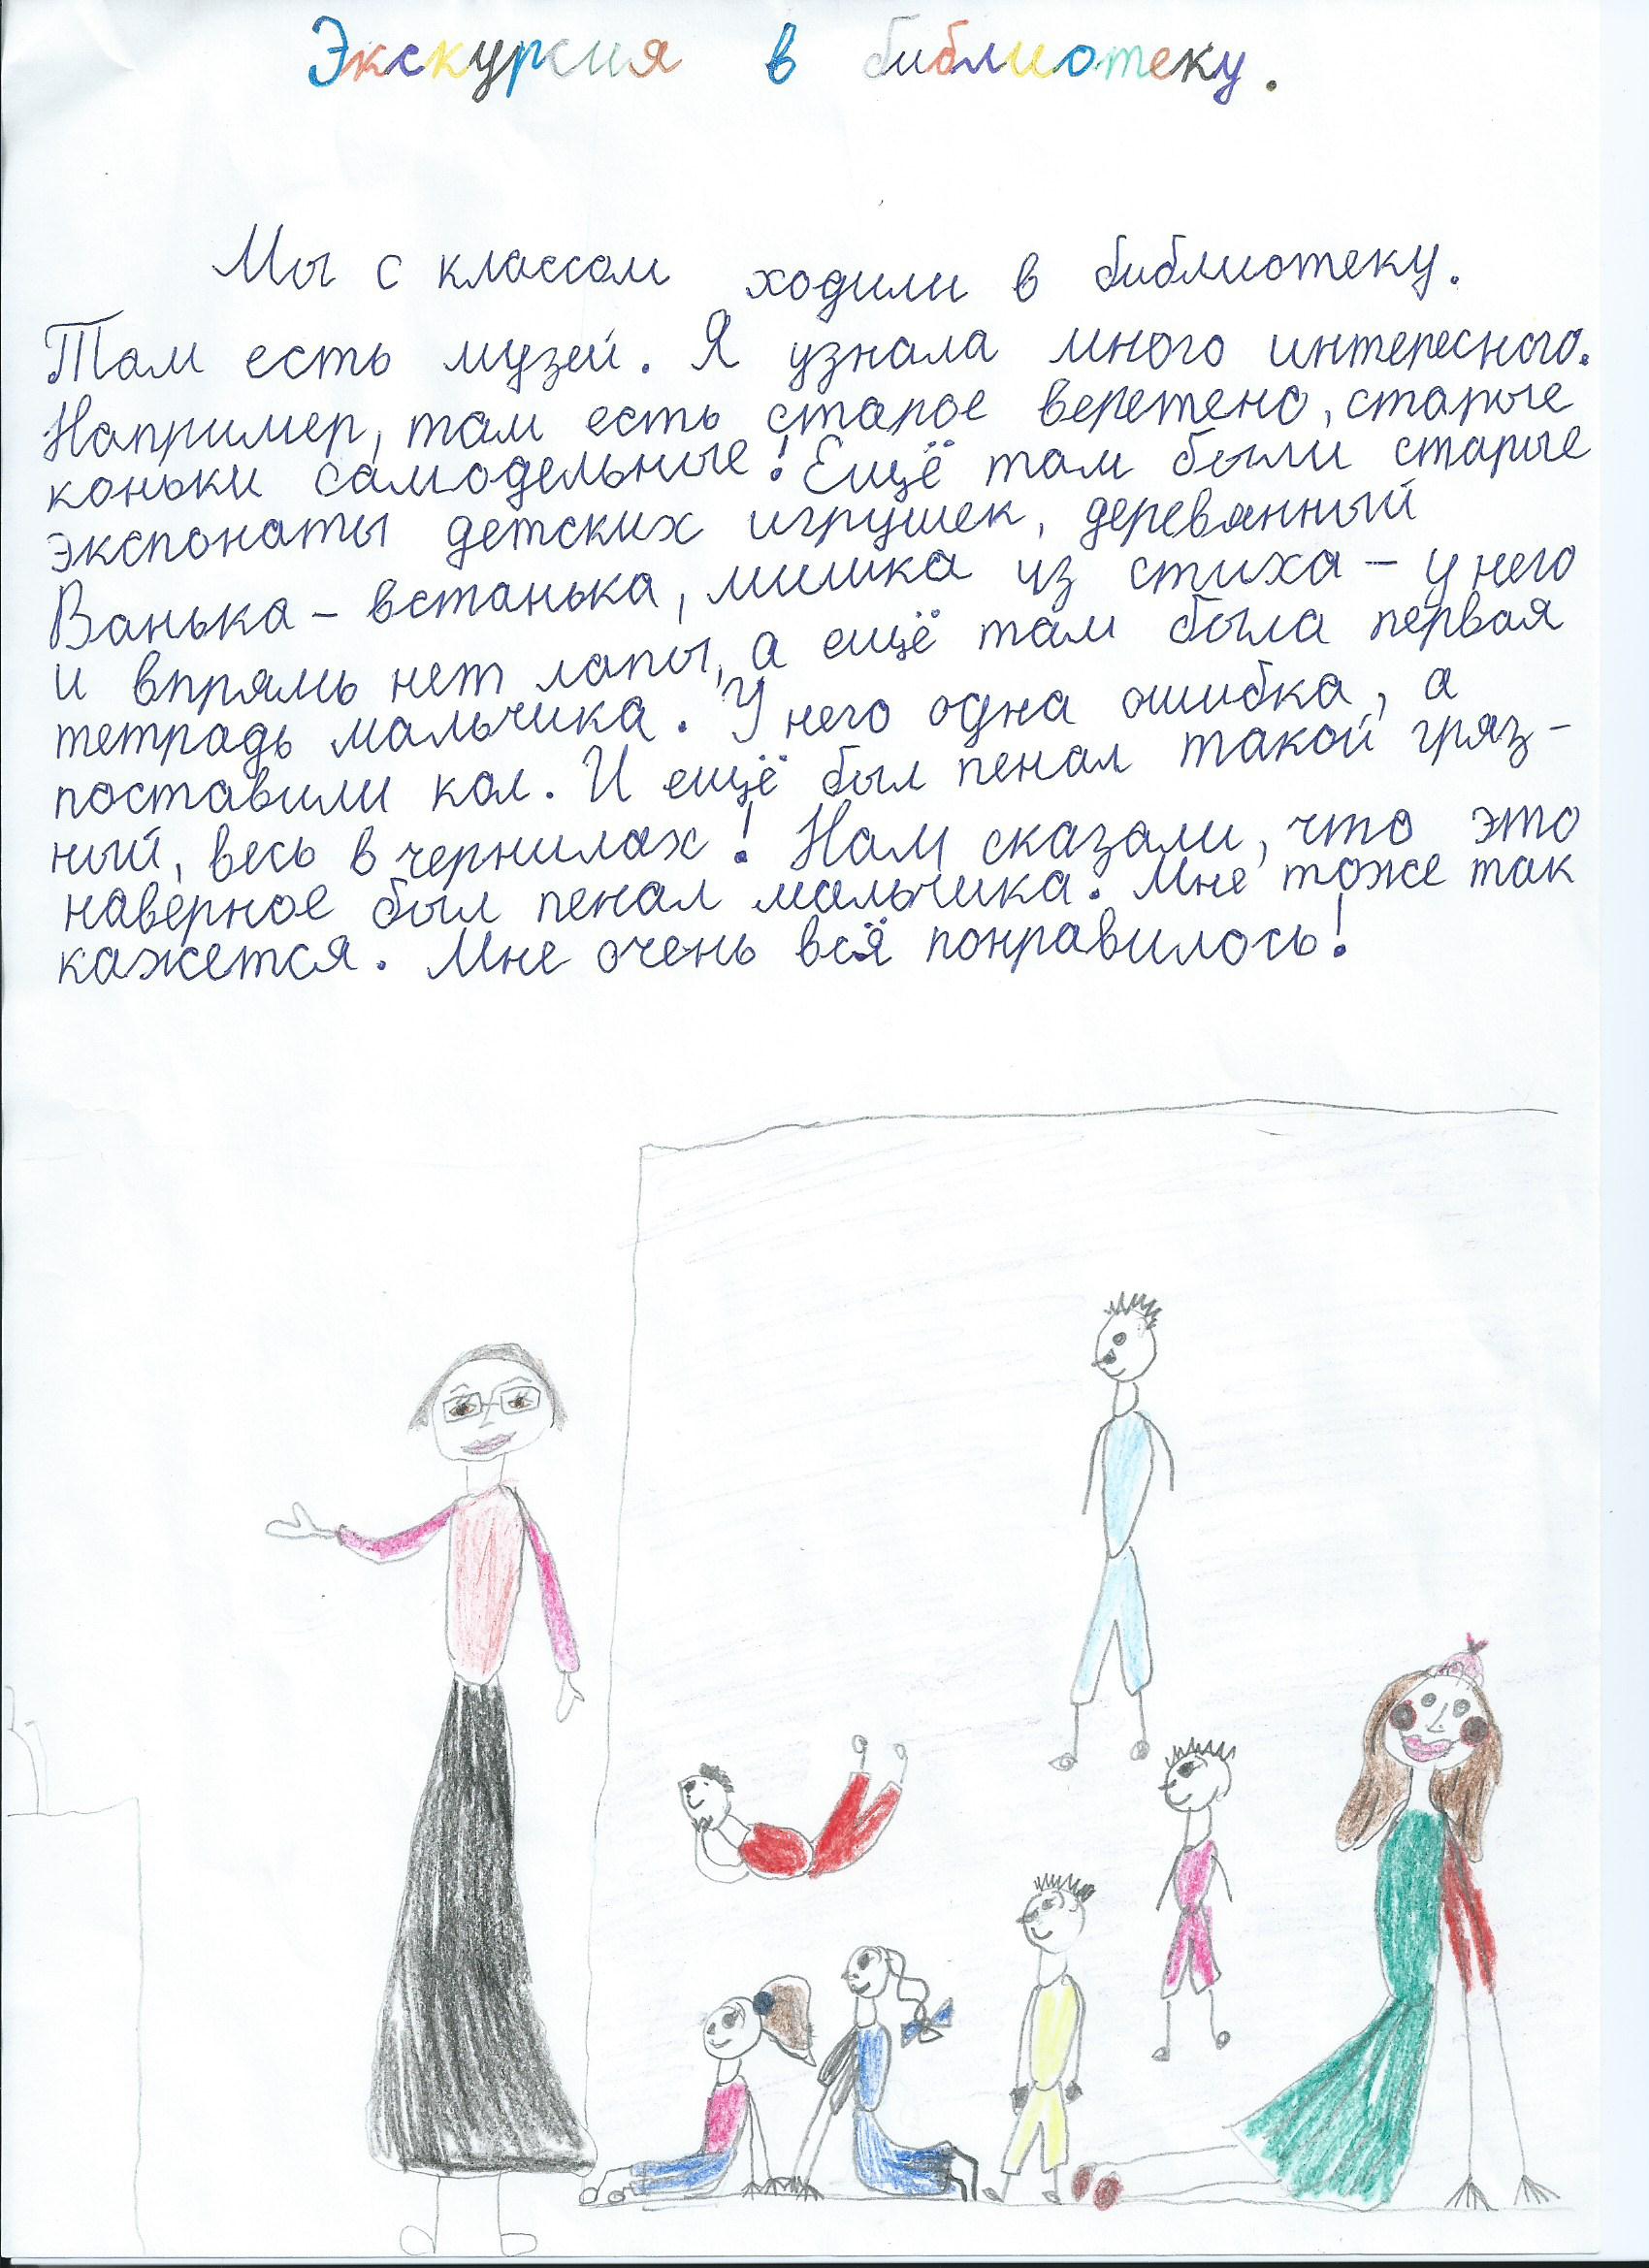 Экскурсия в библиотеку.
Мы с классом ходили в библиотеку.
Там есть музей. Я узнала много интересного.
Например, там есть старое веретено, старые
коньки самодельные! Ещё там были старые
экспонаты детских игрушек, деревянный
Ванька - встанька, мишка из стиха - у него
и впрямь нет лапы, а ещё там была первая
тетрадь мальчика. У него одна ошибка, а
поставили кол. И ещё был пенал такой гряз-
ный, весь в чернилах! Нам сказали, что это
наверное был пенал мальчика. Мне тоже так
кажется. Мне очень всё понравилось!